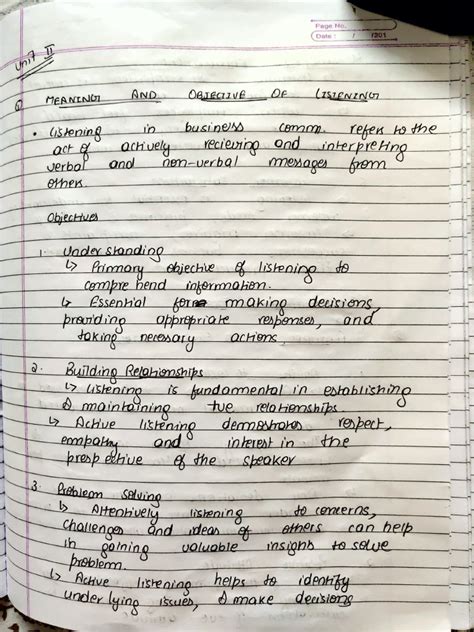 Page No.
Date : / /201
Unit II
Q MEANING AND OBJECTIVE OF LISTENING
• listening in business comm. refers to the
act of actively recieving and interpreting
verbal and non-verbal messages from
others.
Objectives
1. Understanding
↳ Primary objective of listening to
comprehend information.
↳ Essential for making decisions,
providing appropriate responses, and
taking necessary actions.
2. Building Relationships
↳ listening is fundamental in establishing
& maintaining tve relationships.
↳ Active listening demostrates respect,
empathy and interest in the
prespective of the speaker
3. Problem solving
↳ Attentively listening to concerns,
challenges and ideas of others can help
in gaining valuable insighs to solve
problem.
↳ Active listening helps to identify
underlying issues, & make decisions